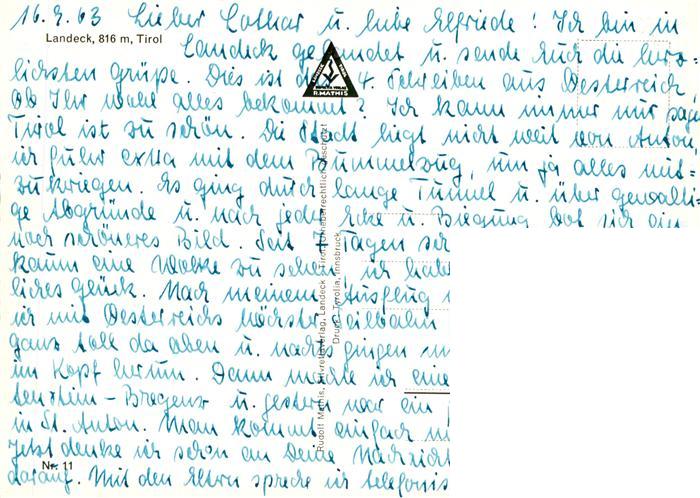 16.9.63 Lieber Lothar u. liebe Elfriede! Ich bin in
Landeck, 816 m, Tirol
Landeck gelandet u. sende Euch die herz=
lichsten Grüße. Dies ist das 4. Schreiben aus Oesterreich,
R.MATHIS
Ob Ihr wohl alles bekommt? Ich kann immer nur sagen
Tirol ist zu schön. Die Stadt liegt nicht weit von Anton,
ich fuhr extra mit dem Bummelzug, um ja alles mit=
zukriegen. Es ging durch lange Tunnel u. über gewalti=
ge Abgründe u. nach jeder Ecke u. Biegung bot sich ein
noch schöneres Bild. Seit Tagen
kaum eine Wolke zu sehen, ich habe
liches Glück. Nach meinem Ausflug
ich mit Oesterreichs höchster Seilbahn
ganz toll da oben u. nachts gingen
im Kopf herum. Dann machte ich eine
tenstein - Bregenz u. gestern war ein
in St. Anton. Man kommt einfach
Jetzt denke ich schon an Deine Nachricht
darauf. Mit den Eltern spreche ich telefonis
Nr. 11
Rudolf Mathis, Verlag, Landeck Tirol. Urheberrechtlich geschützt
Druck: Tyrolia, Innsbruck